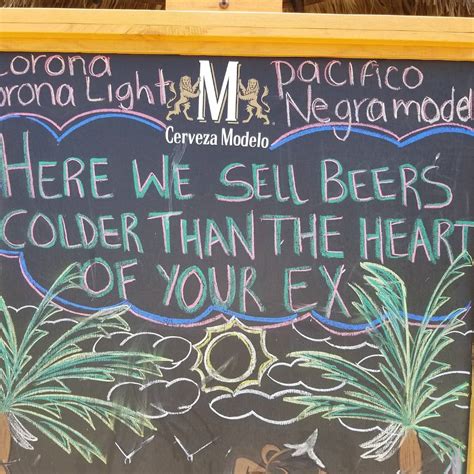 Corona
Corona Light
M
Cerveza Modelo
pacifico
Negra model
HERE WE SELL BEERS
COLDER THAN THE HEART
OF YOUR EX